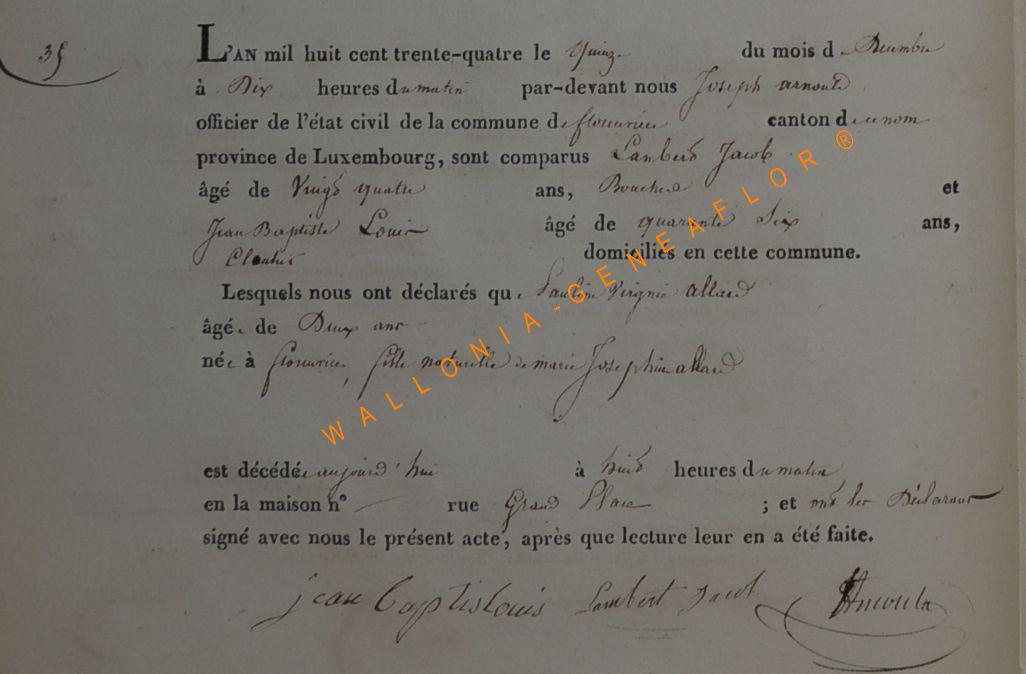 35
L'AN mil huit cent trente-quatre le quinze du mois de Decembre
à Dix heures du matin par-devant nous Joseph arnould
officier de l'état civil de la commune de florenville canton de ce nom
province de Luxembourg, sont comparus Lambert Jacob
âgé de Vingt quatre ans, Boucher et
Jean Baptiste Louis âgé de quarante Six ans,
Cloutier domiciliés en cette commune.
Lesquels nous ont déclarés que Pauline Virginie allard
âgée de Deux ans
née à florenville, fille naturelle de marie Josephine allard
est décédée aujourd'hui à huit heures du matin
en la maison n° rue Grand Place ; et ont les Déclarans
signé avec nous le présent acte, après que lecture leur en a été faite.
jean Baptis louis Lambert Jacob
WALLONIA-GENEAFLOR®